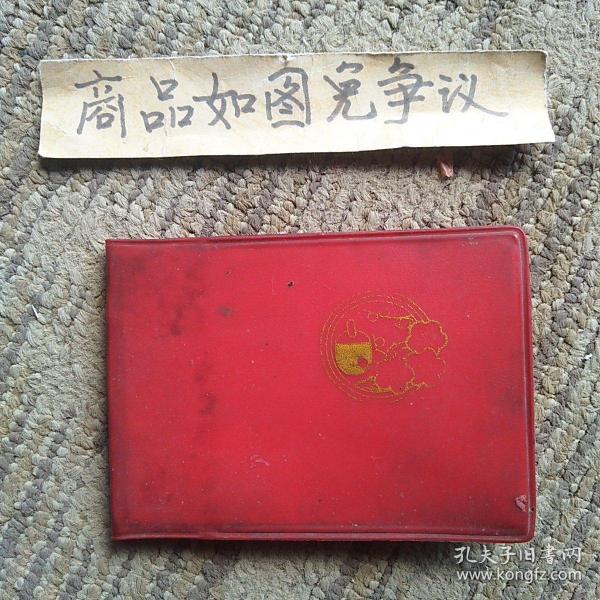 商品如图免争议
孔夫子旧书网
www.kongfz.com